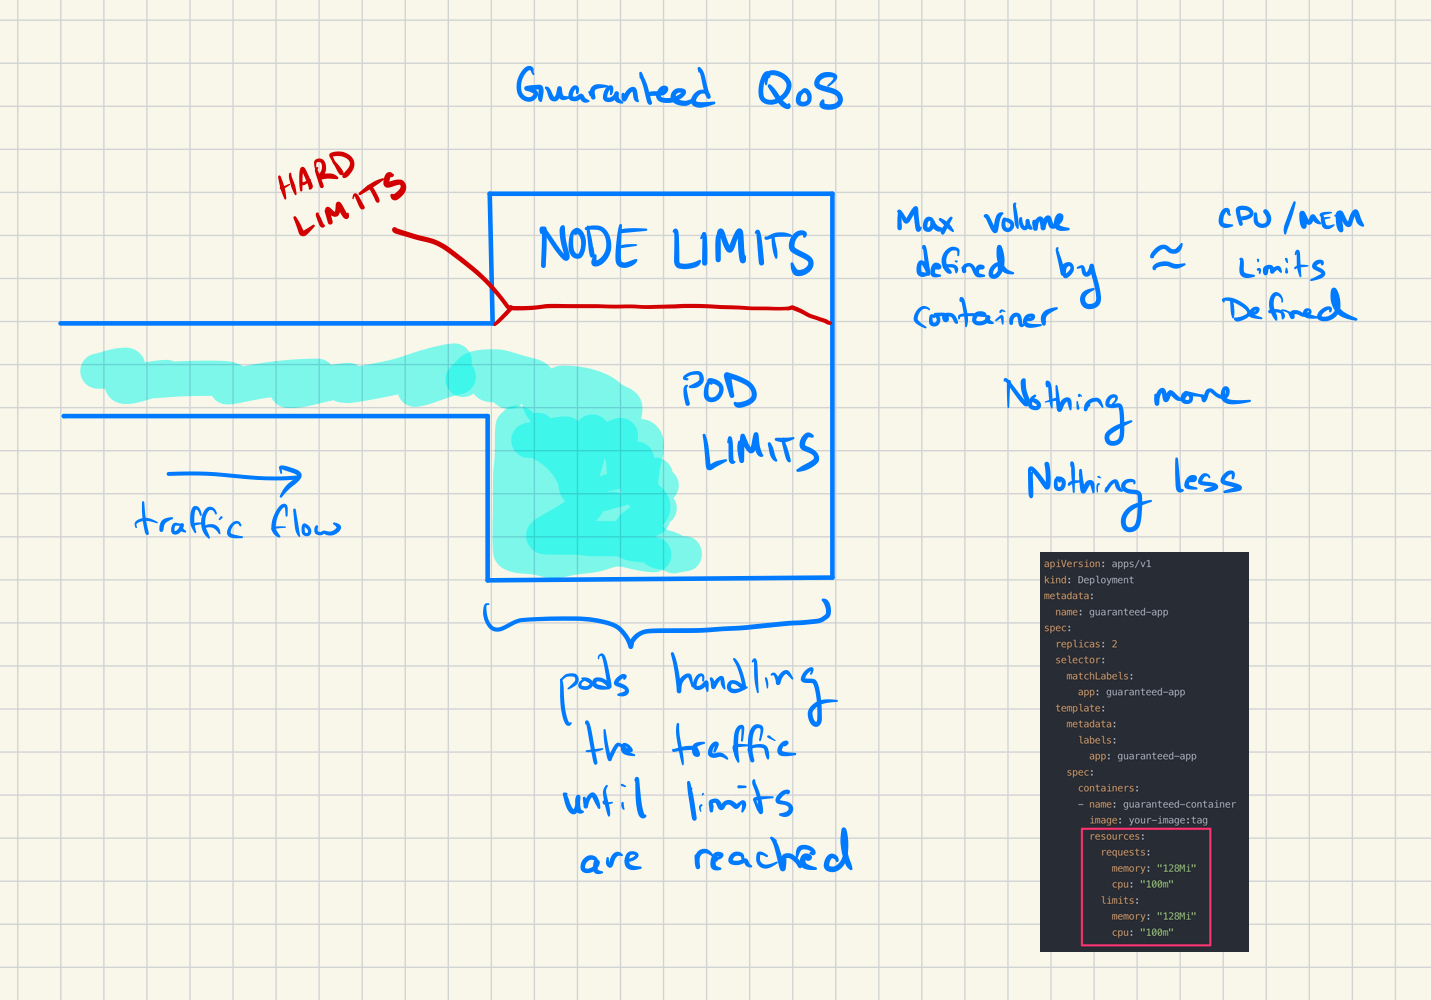 Guaranteed QoS
HARD
LIMITS
NODE LIMITS
POD
LIMITS
traffic flow
pods handling
the traffic
until limits
are reached
Max volume
defined by
container
≈
CPU/MEM
Limits
Defined
Nothing more
Nothing less
apiVersion: apps/v1
kind: Deployment
metadata:
  name: guaranteed-app
spec:
  replicas: 2
  selector:
    matchLabels:
      app: guaranteed-app
  template:
    metadata:
      labels:
        app: guaranteed-app
    spec:
      containers:
      - name: guaranteed-container
        image: your-image:tag
        resources:
          requests:
            memory: "128Mi"
            cpu: "100m"
          limits:
            memory: "128Mi"
            cpu: "100m"